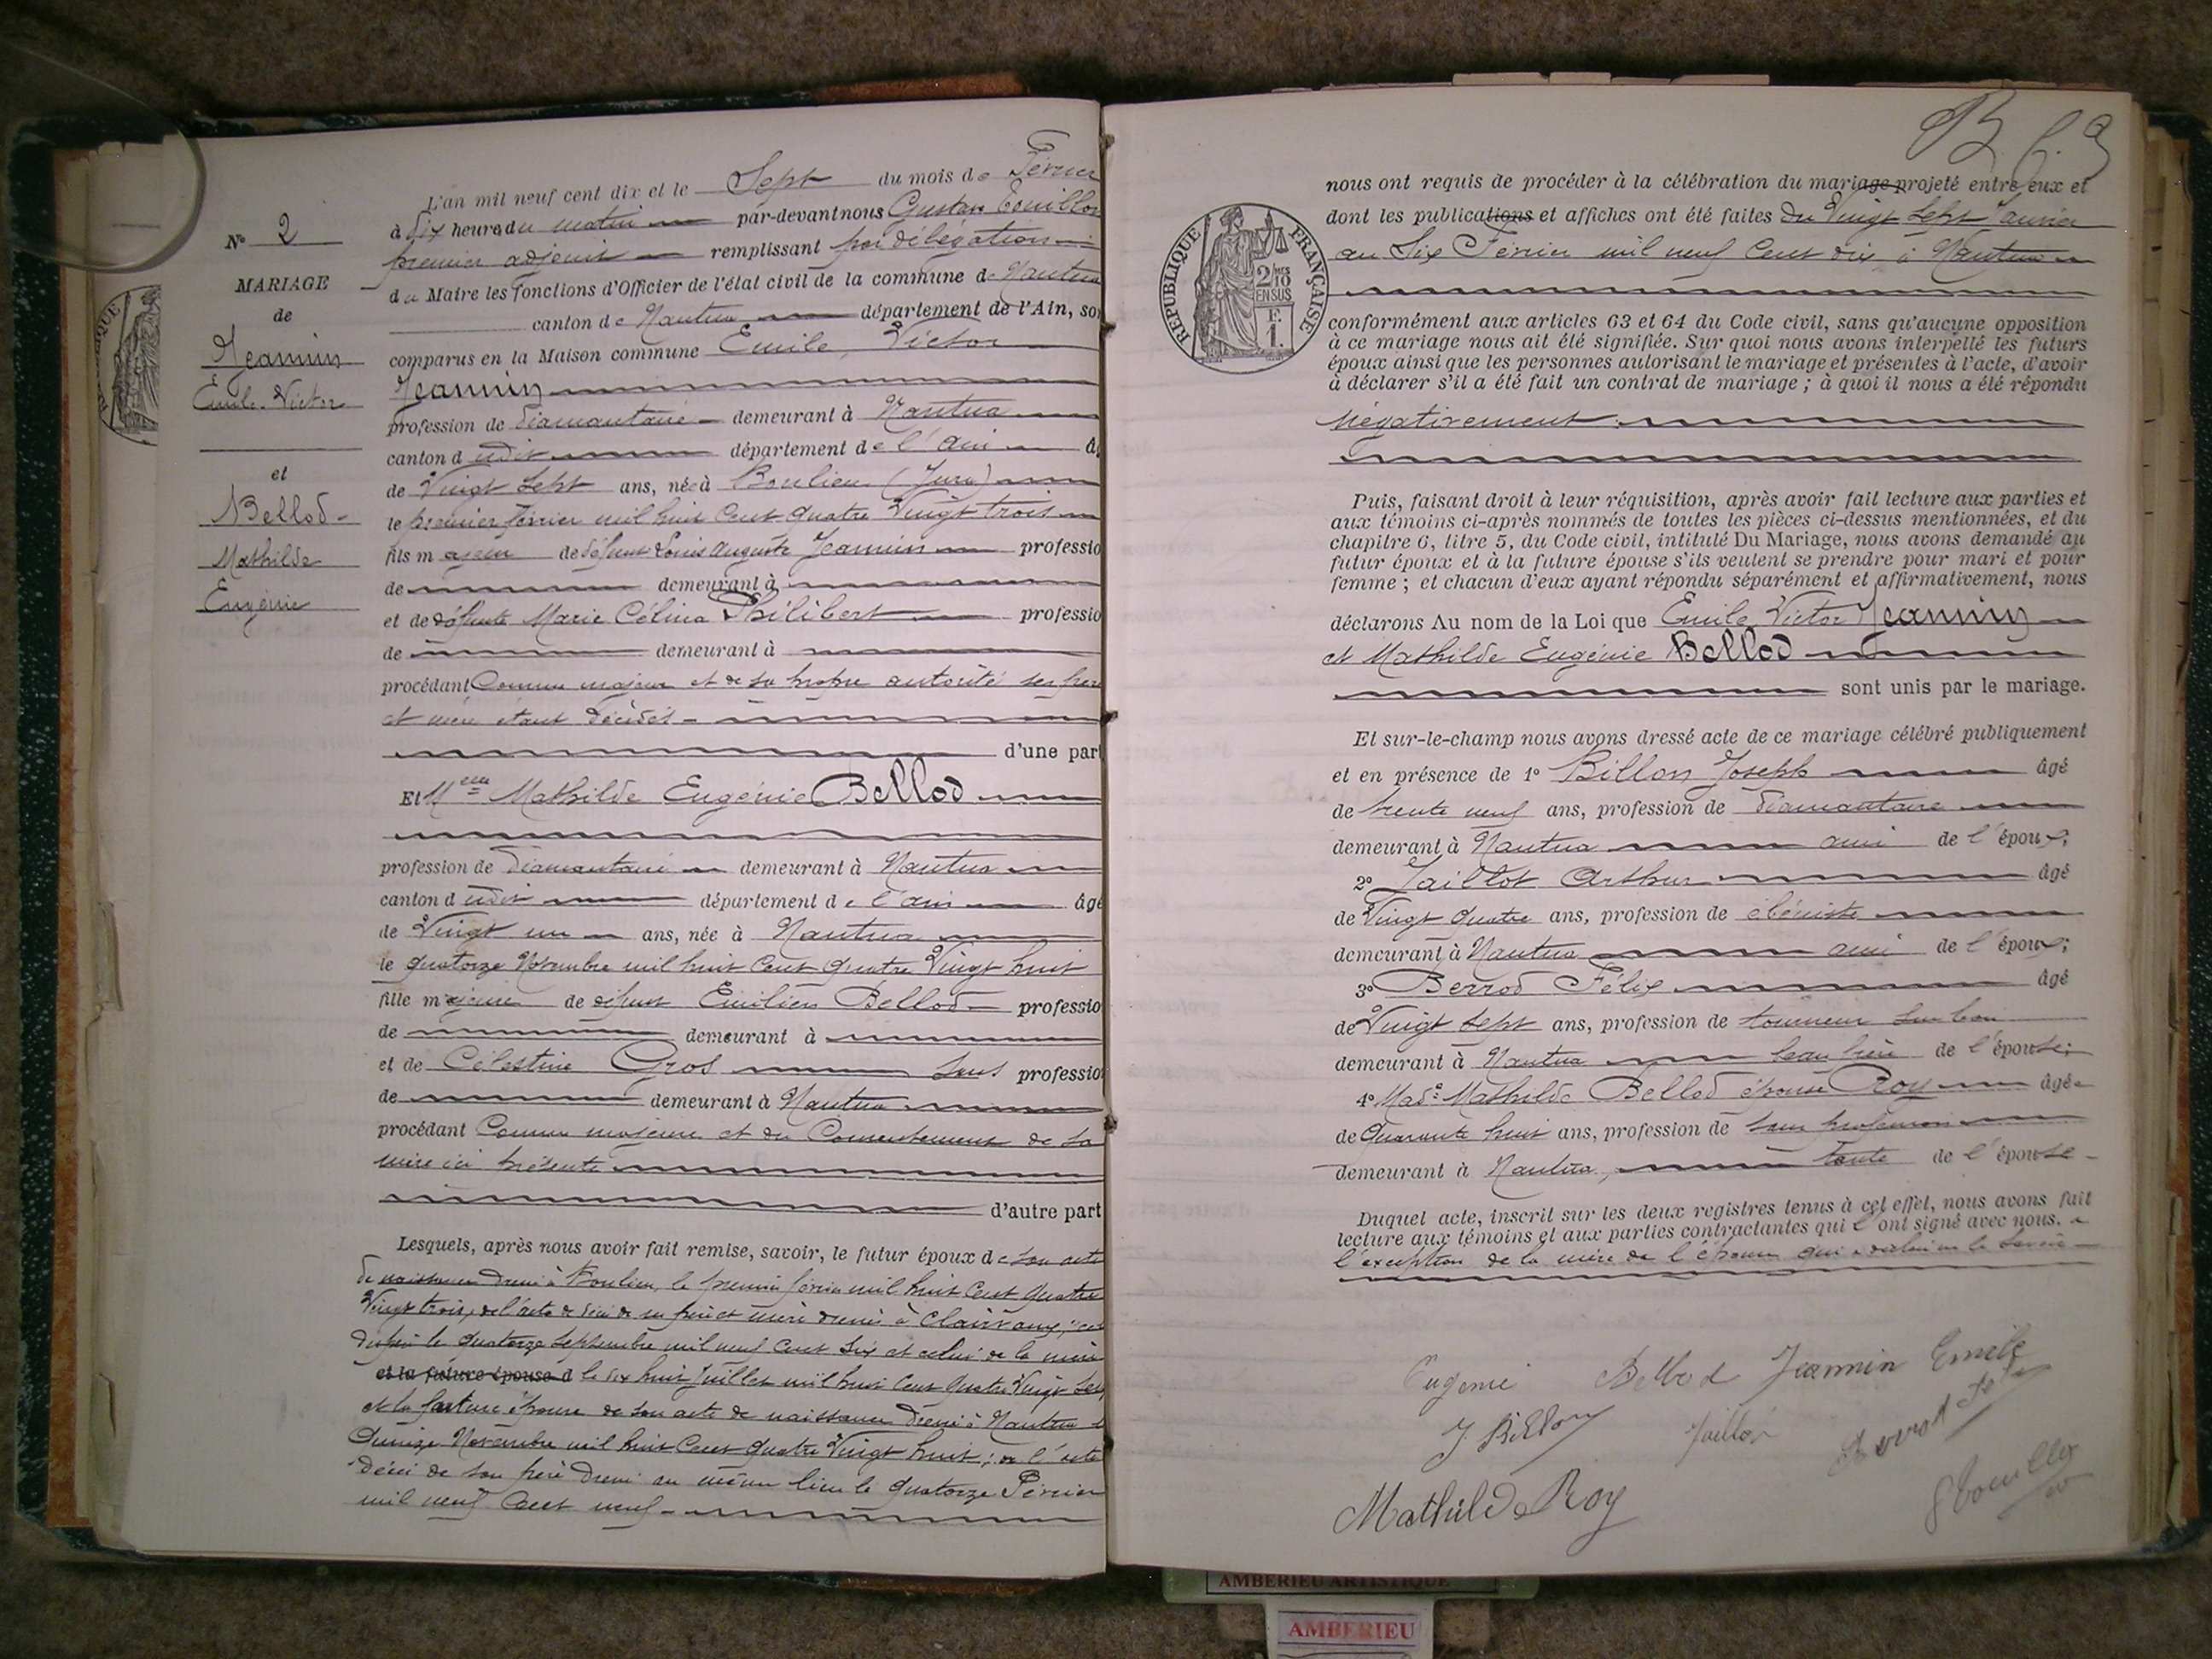 N° 2
MARIAGE
de
Jeannin
Emile Victor
et
Bellod
Mathilde
Eugénie
L'an mil neuf cent dix et le Sept du mois de Février
à dix heure du matin par-devant nous Gustave Touillon
premier adjoint remplissant par délégation
du Maire les fonctions d'Officier de l'état civil de la commune de Nantua
canton de Nantua département de l'Ain, son
comparus en la Maison commune Emile, Victor
Jeannin
profession de diamantaire demeurant à Nantua
canton d udit département de l'Ain
de Vingt sept ans, né à Boulieu (Jura)
le premier février mil huit cent quatre Vingt trois
fils majeur de défunt Louis Auguste Jeannin professio
de demeurant à
et de défunte Marie Célina Philibert professio
de demeurant à
procédant Comme majeur et de sa propre autorité ses père
et mère étant décédés
d'une part
Et Melle Mathilde Eugénie Bellod
profession de diamantaire demeurant à Nantua
canton d udit département de l'Ain âgé
de Vingt un ans, née à Nantua
le quatorze Novembre mil huit cent quatre Vingt huit
fille majeure de défunt Emilien Bellod professio
de demeurant à
et de Célestine Gros sans profession
de demeurant à Nantua
procédant Comme majeure et du Consentement de sa
mère ici présente
d'autre part
Lesquels, après nous avoir fait remise, savoir, le futur époux de son acte
de naissance dressé à Boulieu, le premier février mil huit cent quatre
Vingt trois, de l'acte de décès de ses père et mère dressés à Clairvaux,
du père le quatorze Septembre mil neuf cent six et celui de la mère
et la future épouse d le dix huit Juillet mil huit cent quatre Vingt
et la future épouse de son acte de naissance dressé à Nantua
Quinze Novembre mil huit cent quatre Vingt huit; de l'acte
décès de son père dressé au même lieu le quatorze Février
mil neuf cent neuf
nous ont requis de procéder à la célébration du mariage projeté entre eux et
dont les publications et affiches ont été faites du Vingt Sept Janvier
au Six Février mil neuf cent dix à Nantua
RÉPUBLIQUE FRANÇAISE
2/10 EN SUS
F. 1.
conformément aux articles 63 et 64 du Code civil, sans qu'aucune opposition
à ce mariage nous ait été signifiée. Sur quoi nous avons interpellé les futurs
époux ainsi que les personnes autorisant le mariage et présentes à l'acte, d'avoir
à déclarer s'il a été fait un contrat de mariage ; à quoi il nous a été répondu
négativement
Puis, faisant droit à leur réquisition, après avoir fait lecture aux parties et
aux témoins ci-après nommés de toutes les pièces ci-dessus mentionnées, et du
chapitre 6, titre 5, du Code civil, intitulé Du Mariage, nous avons demandé au
futur époux et à la future épouse s'ils veulent se prendre pour mari et pour
femme ; et chacun d'eux ayant répondu séparément et affirmativement, nous
déclarons Au nom de la Loi que Emile Victor Jeannin
et Mathilde Eugénie Bellod
sont unis par le mariage.
Et sur-le-champ nous avons dressé acte de ce mariage célébré publiquement
et en présence de 1° Billon Joseph âgé
de trente neuf ans, profession de diamantaire
demeurant à Nantua ami de l'époux;
2° Jaillot Arthur âgé
de Vingt quatre ans, profession de ébéniste
demeurant à Nantua ami de l'époux;
3° Berrod Félix âgé
de Vingt sept ans, profession de tourneur sur bois
demeurant à Nantua beau frère de l'épouse;
4° Made Mathilde Bellod épouse Roy âgée
de Quarante huit ans, profession de sans profession
demeurant à Nantua, tante de l'épouse
Duquel acte, inscrit sur les deux registres tenus à cet effet, nous avons fait
lecture aux témoins et aux parties contractantes qui l'ont signé avec nous. à
l'exception de la mère de l'épouse qui a déclaré ne le savoir
Eugenie Bellod Jeannin Emile
J. Billon Jaillot Berrod Félix
Mathilde Roy GTouillon
AMBERIEU ARTISTIQUE
AMBERIEU